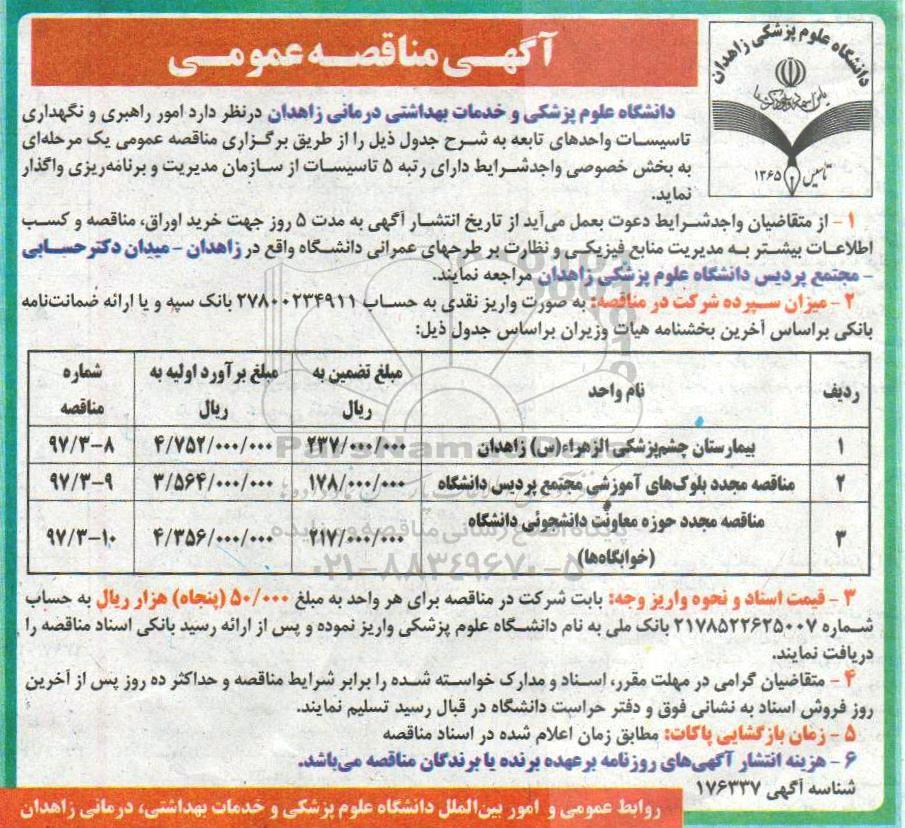 آگهی مناقصه عمومی
دانشگاه علوم پزشکی زاهدان
تاسیس ۱۳۶۵
دانشگاه علوم پزشکی و خدمات بهداشتی درمانی زاهدان درنظر دارد امور راهبری و نگهداری
تاسیسات واحدهای تابعه به شرح جدول ذیل را از طریق برگزاری مناقصه عمومی یک مرحله‌ای
به بخش خصوصی واجدشرایط دارای رتبه ۵ تاسیسات از سازمان مدیریت و برنامه‌ریزی واگذار
نماید.
۱ - از متقاضیان واجدشرایط دعوت بعمل می‌آید از تاریخ انتشار آگهی به مدت ۵ روز جهت خرید اوراق، مناقصه و کسب
اطلاعات بیشتر به مدیریت منابع فیزیکی و نظارت بر طرحهای عمرانی دانشگاه واقع در زاهدان - میدان دکترحسابی
- مجتمع پردیس دانشگاه علوم پزشکی زاهدان مراجعه نمایند.
۲ - میزان سپرده شرکت در مناقصه: به صورت واریز نقدی به حساب ۲۷۸۰۰۲۳۴۹۱۱ بانک سپه و یا ارائه ضمانت‌نامه
بانکی براساس آخرین بخشنامه هیات وزیران براساس جدول ذیل:
ردیف نام واحد مبلغ تضمین به ریال مبلغ برآورد اولیه به ریال شماره مناقصه
۱ بیمارستان چشم‌پزشکی الزهراء(س) زاهدان ۲۳۷/۰۰۰/۰۰۰ ۴/۷۵۲/۰۰۰/۰۰۰ ۹۷/۳-۸
۲ مناقصه مجدد بلوک‌های آموزشی مجتمع پردیس دانشگاه ۱۷۸/۰۰۰/۰۰۰ ۳/۵۶۴/۰۰۰/۰۰۰ ۹۷/۳-۹
۳ مناقصه مجدد حوزه معاونت دانشجوئی دانشگاه (خوابگاه‌ها) ۲۱۷/۰۰۰/۰۰۰ ۴/۳۵۶/۰۰۰/۰۰۰ ۹۷/۳-۱۰
پایگاه اطلاع رسانی مناقصه و مزایده
۰۲۱-۸۸۳۴۹۶۷۰-۵
۳ - قیمت اسناد و نحوه واریز وجه: بابت شرکت در مناقصه برای هر واحد به مبلغ ۵۰/۰۰۰ (پنجاه) هزار ریال به حساب
شماره ۲۱۷۸۵۲۲۶۲۵۰۰۷ بانک ملی به نام دانشگاه علوم پزشکی واریز نموده و پس از ارائه رسید بانکی اسناد مناقصه را
دریافت نمایند.
۴ - متقاضیان گرامی در مهلت مقرر، اسناد و مدارک خواسته شده را برابر شرایط مناقصه و حداکثر ده روز پس از آخرین
روز فروش اسناد به نشانی فوق و دفتر حراست دانشگاه در قبال رسید تسلیم نمایند.
۵ - زمان بازگشایی پاکات: مطابق زمان اعلام شده در اسناد مناقصه
۶ - هزینه انتشار آگهی‌های روزنامه برعهده برنده یا برندگان مناقصه می‌باشد.
شناسه آگهی ۱۷۶۳۳۷
روابط عمومی و امور بین‌الملل دانشگاه علوم پزشکی و خدمات بهداشتی، درمانی زاهدان